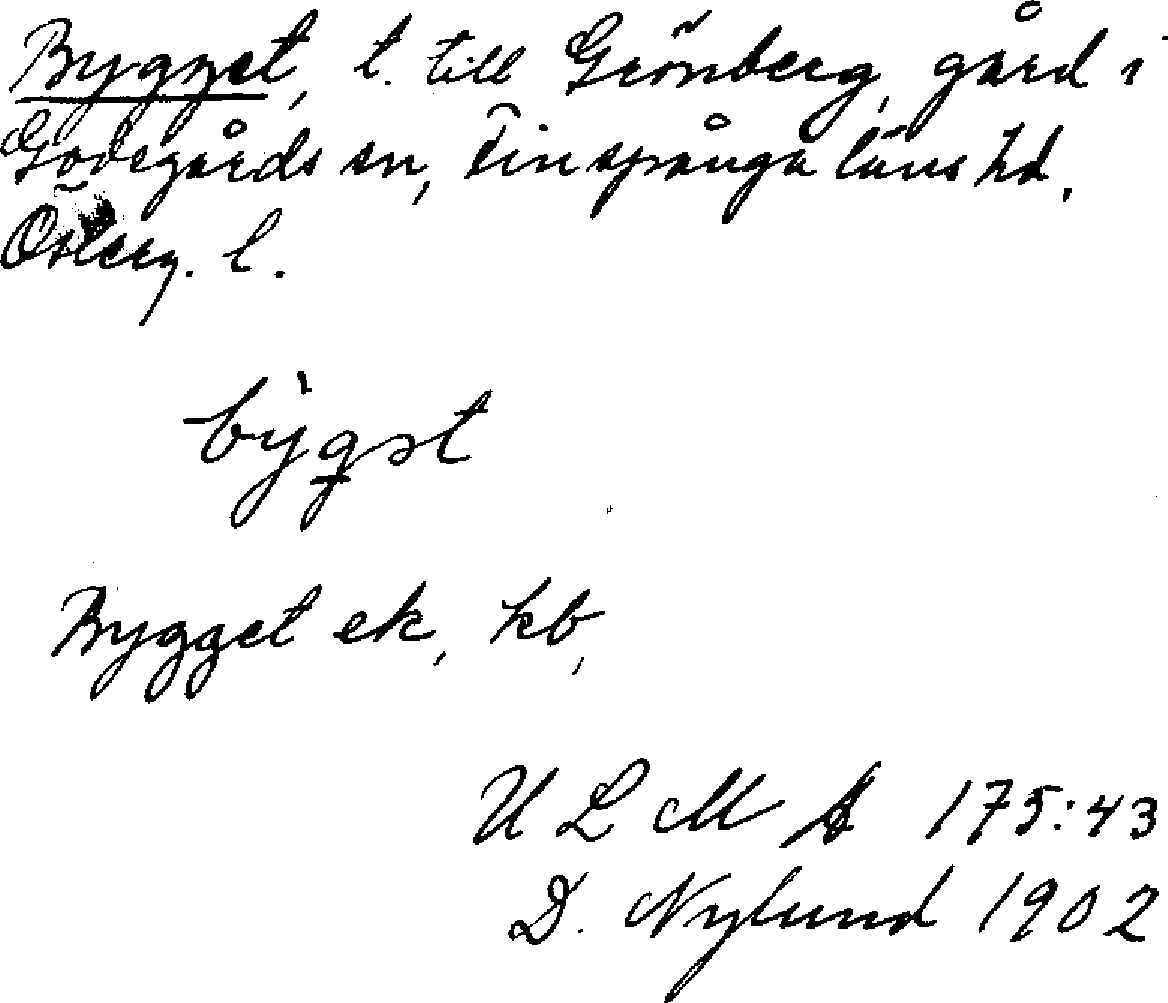 Bygget, t. till Grönberg, gård i
Godegårds sn, Finspånga läns hd,
Österg. l.
bỳgət
Bygget ek, kb,
U L M A 175:43
D. Nylund 1902